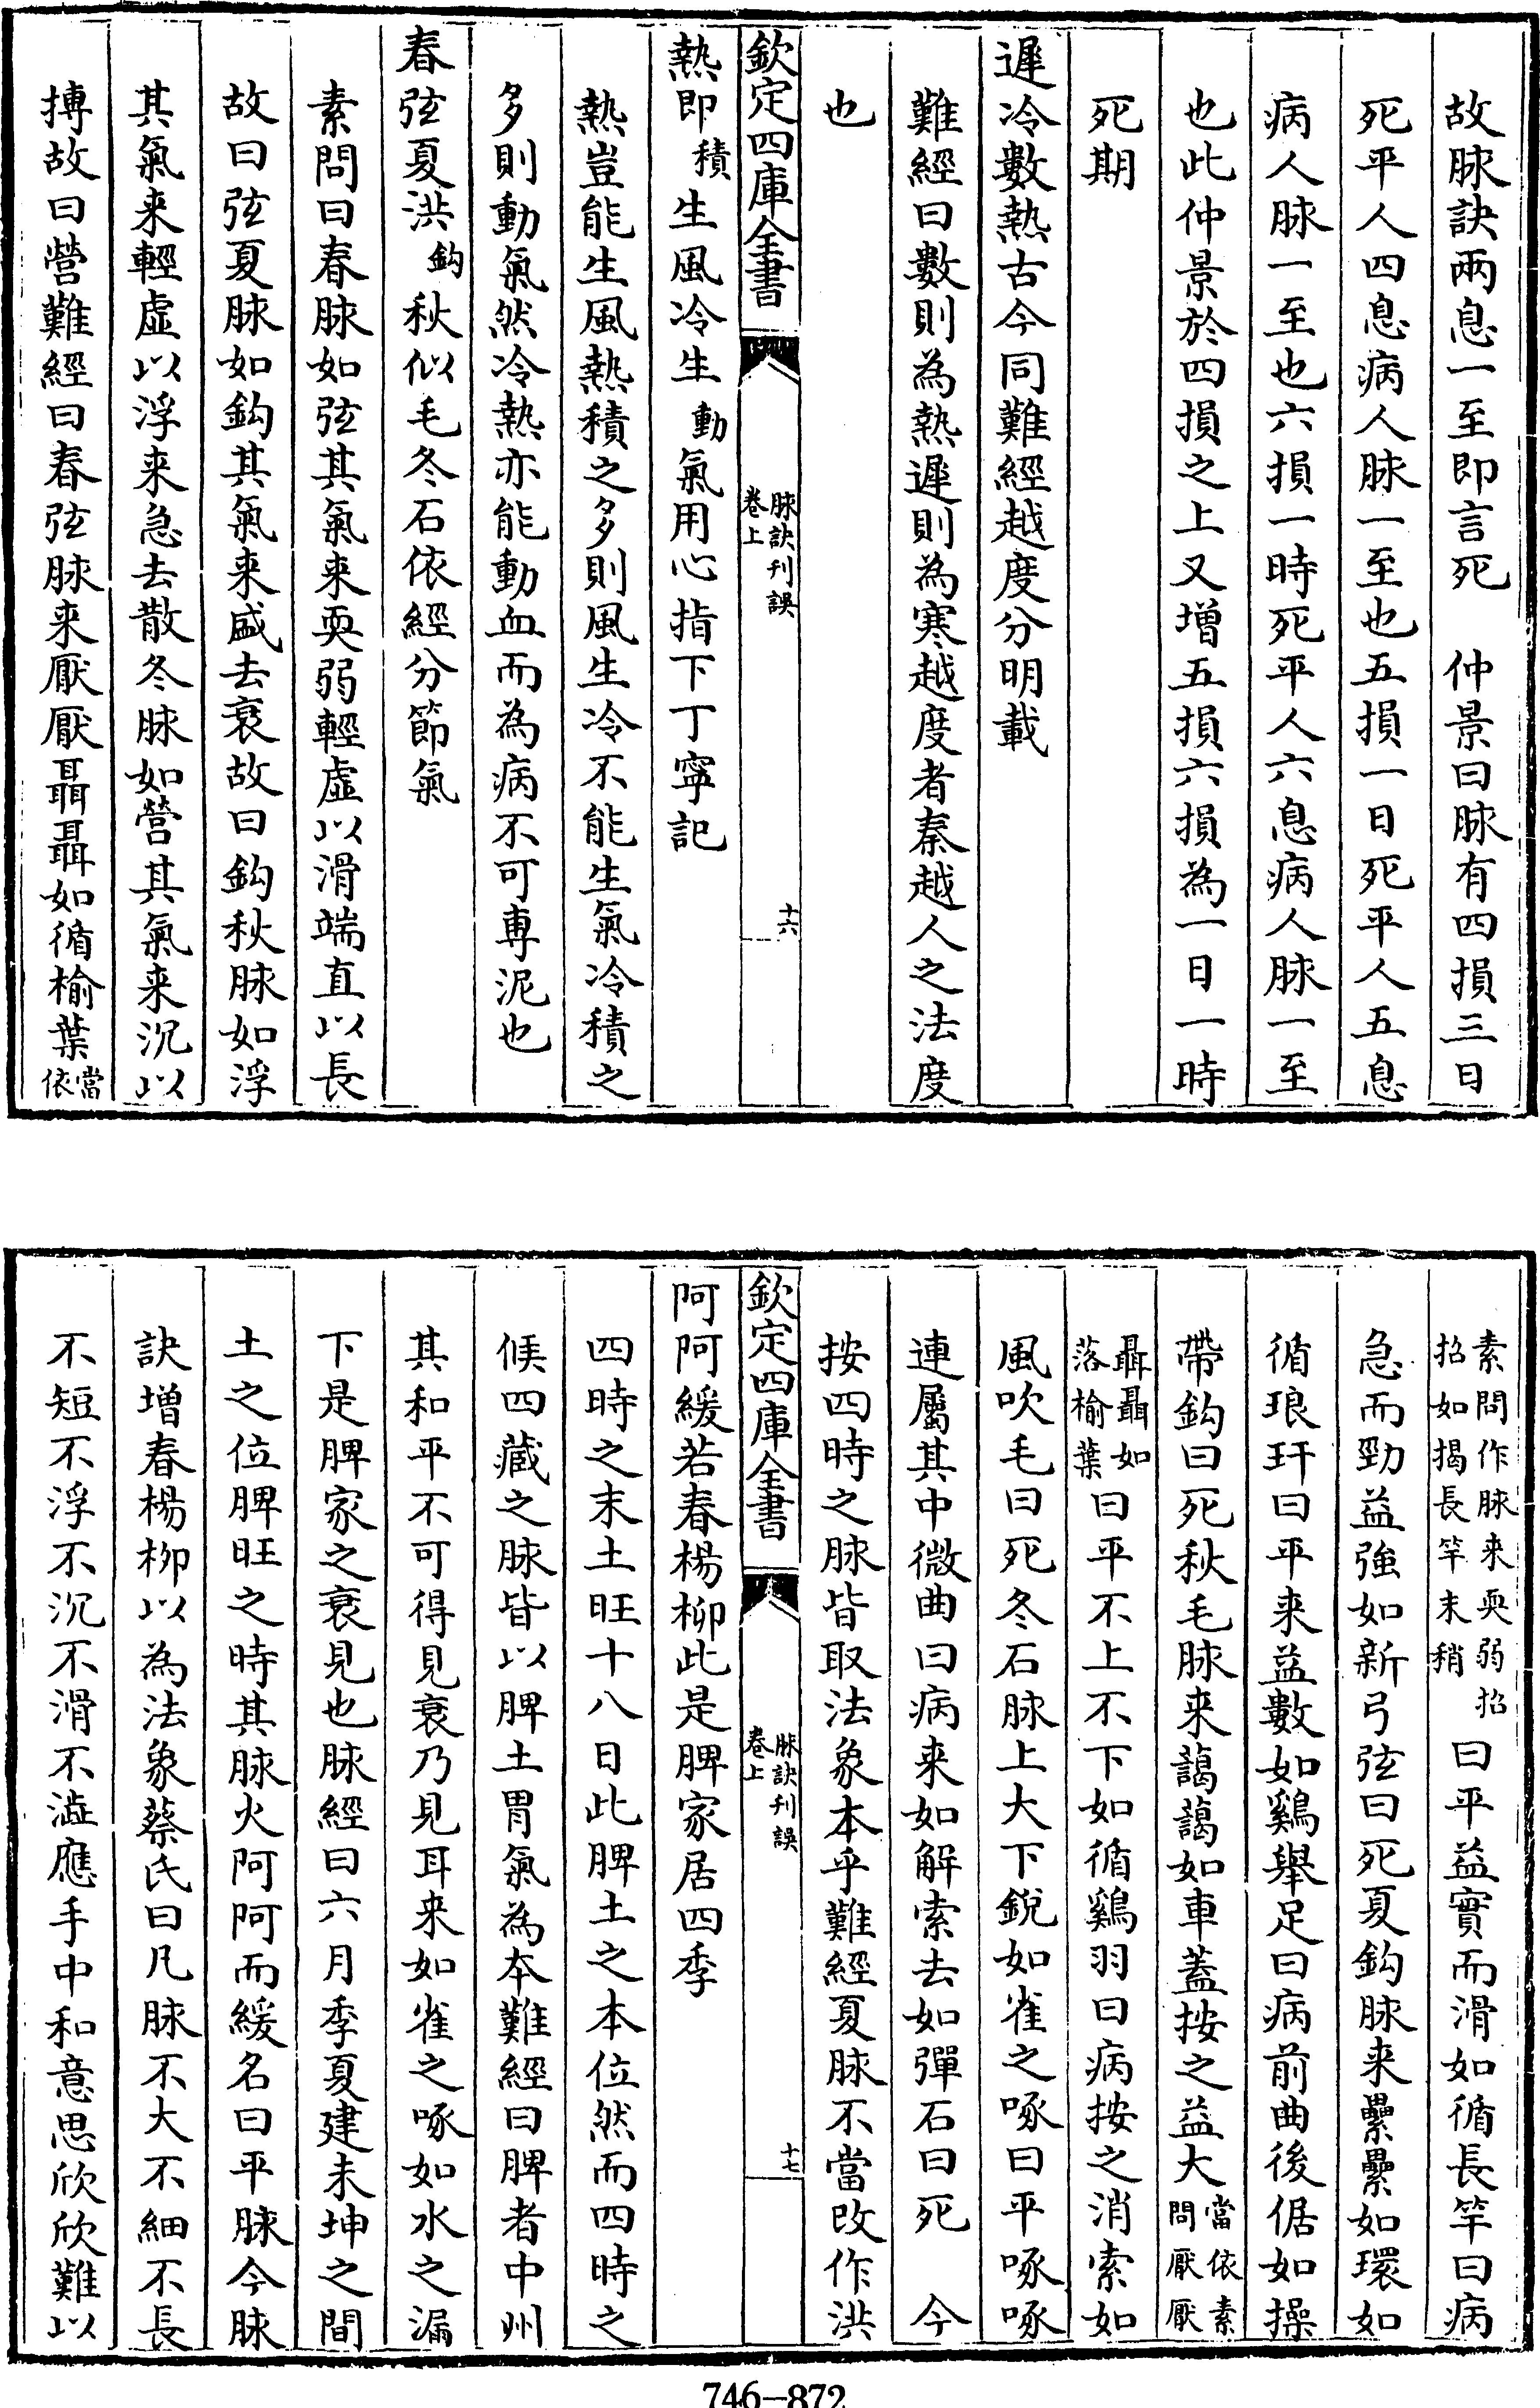 故脉訣兩息一至即言死　仲景曰脉有四損三日
死平人四息病人脉一至也五損一日死平人五息
病人脉一至也六損一時死平人六息病人脉一至
也此仲景於四損之上又增五損六損為一日一時
死期
遲冷數熱古今同難經越度分明載
難經曰數則為熱遲則為寒越度者秦越人之法度
也
欽定四庫全書
脉訣刋誤
卷上
十六
熱即積生風冷生動氣用心指下丁寧記
熱豈能生風熱積之多則風生冷不能生氣冷積之
多則動氣然冷熱亦能動血而為病不可専泥也
春弦夏洪鈎秋似毛冬石依經分節氣
素問曰春脉如弦其氣来耎弱輕虛以滑端直以長
故曰弦夏脉如鈎其氣来盛去衰故曰鈎秋脉如浮
其氣来輕虛以浮来急去散冬脉如營其氣来沉以
搏故曰營難經曰春弦脉来厭厭聶聶如循榆葉當依
素問作脉来耎弱招招如揭長竿末稍曰平益實而滑如循長竿曰病
急而勁益強如新弓弦曰死夏鈎脉来纍纍如環如
循琅玕曰平来益數如鷄舉足曰病前曲後倨如操
帶鈎曰死秋毛脉来藹藹如車蓋按之益大當依素問厭厭
聶聶如落榆葉曰平不上不下如循鷄羽曰病按之消索如
風吹毛曰死冬石脉上大下銳如雀之啄曰平啄啄
連屬其中微曲曰病来如解索去如彈石曰死　今
按四時之脉皆取法象本乎難經夏脉不當改作洪
欽定四庫全書
脉訣刋誤
卷上
十七
阿阿緩若春楊柳此是脾家居四季
四時之末土旺十八日此脾土之本位然而四時之
候四藏之脉皆以脾土胃氣為本難經曰脾者中州
其和平不可得見衰乃見耳来如雀之啄如水之漏
下是脾家之衰見也脉經曰六月季夏建未坤之間
土之位脾旺之時其脉火阿阿而緩名曰平脉今脉
訣增春楊柳以為法象蔡氏曰凡脉不大不細不長
不短不浮不沉不滑不澁應手中和意思欣欣難以
746-872